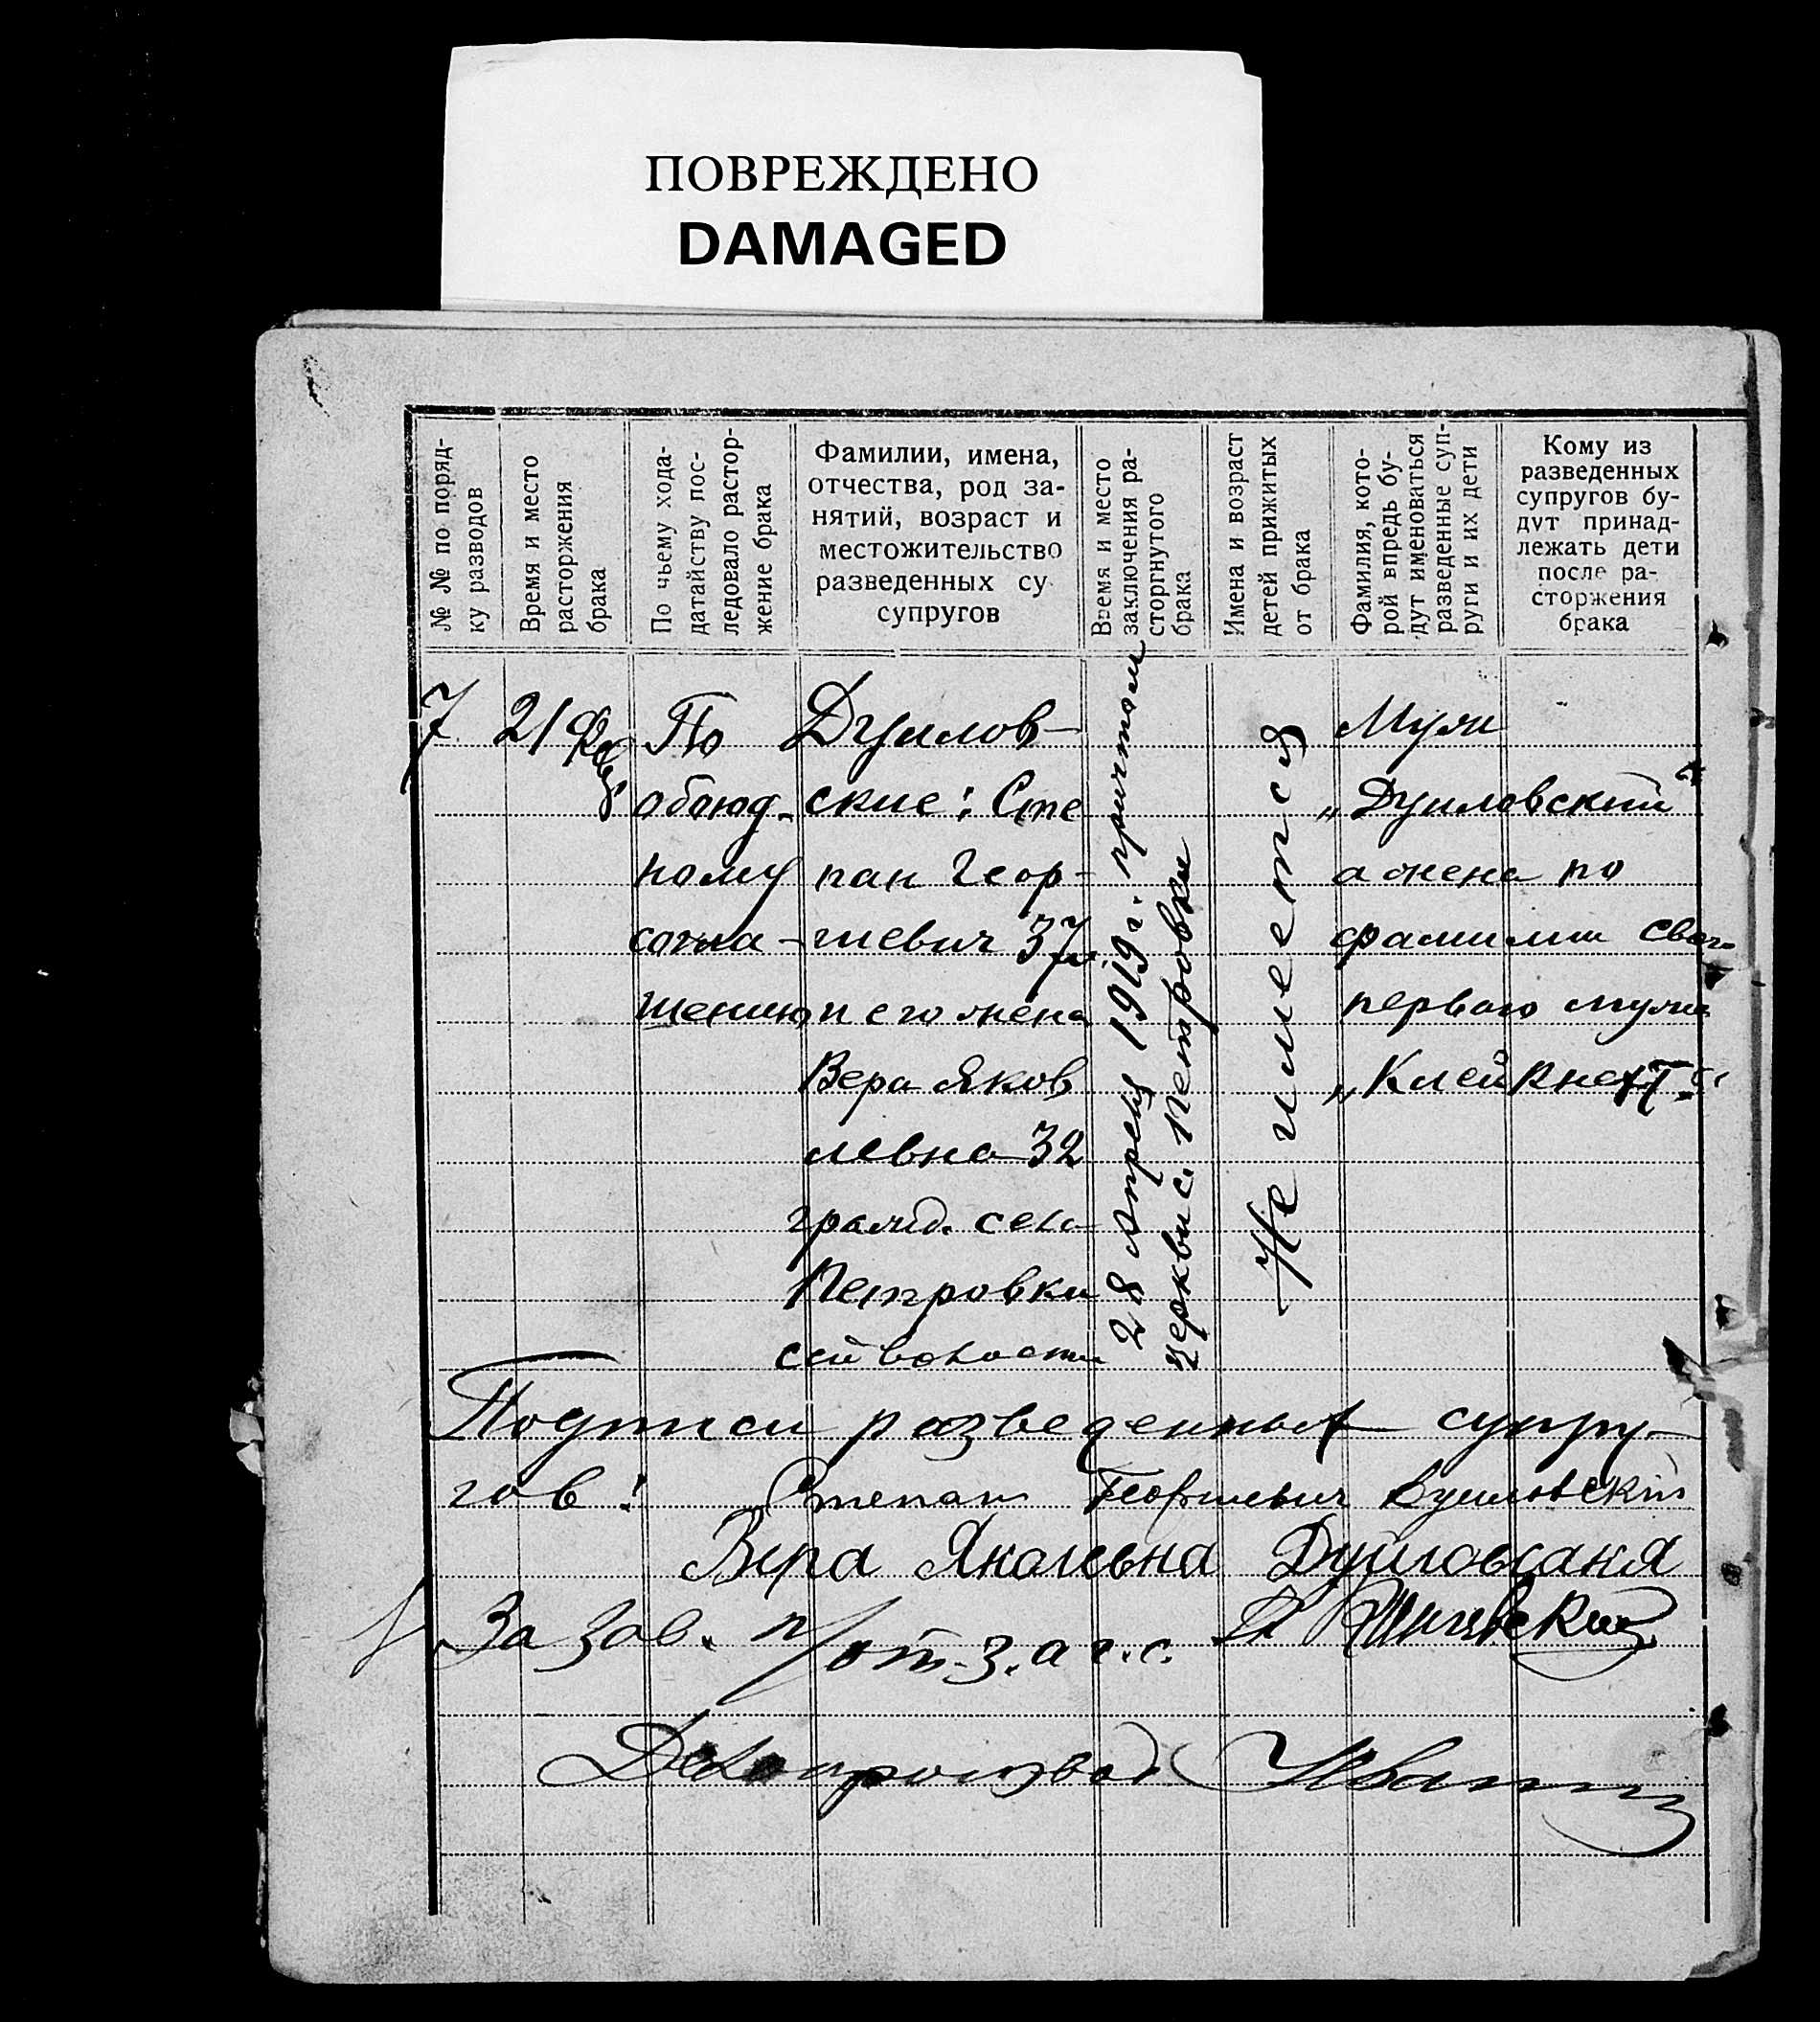 ПОВРЕЖДЕНО
DAMAGED
№ № по поряд-
ку разводов
Время и место
расторжения
брака
По чьему хода-
датайству пос-
ледовало растор-
жение брака
Фамилии, имена,
отчества, род за-
нятий, возраст и
местожительство
разведенных су
супругов
Время и место
заключения ра-
сторгнутого
брака
Имена и возраст
детей прижитых
от брака
Фамилия, кото-
рой впредь бу-
дут именоваться
разведенные суп-
руги и их дети
Кому из
разведенных
супругов бу-
дут принад-
лежать дети
после ра-
сторжения
брака
7
21 Февр
По
обоюд-
ному
согла-
шению
Дуилов-
ские: Сте
пан Геор-
гиевич 37
и его жена
Вера Яков
левна 32
гражд. села
Петровки
сей волости
28 Апреля 1919 г. причтом
церкви с. Петровки
Не имеется
Муж
„Дуиловский“
а жена по
фамилии своего
первого мужа
„Клейкнехт“
Подписи разведенных супру-
гов: Степан Георгиевич Дуиловский
Вера Яковлевна Дуиловская
За Зав. п/от. з.а г.с.
Делопроизвод